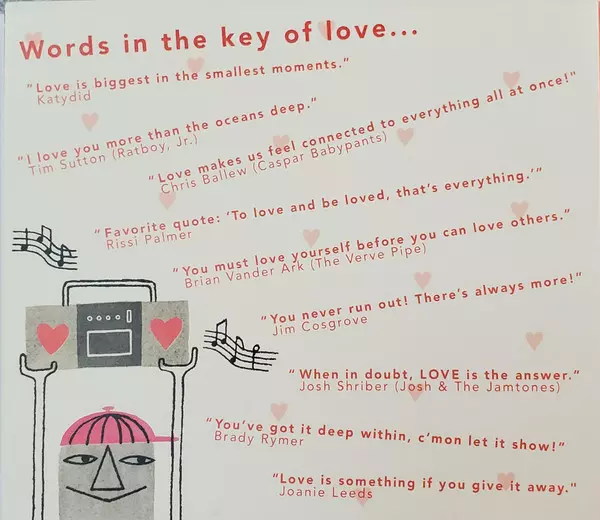 Words in the key of love...
"Love is biggest in the smallest moments."
Katydid
"I love you more than the oceans deep."
Tim Sutton (Ratboy, Jr.)
"Love makes us feel connected to everything all at once!"
Chris Ballew (Caspar Babypants)
"Favorite quote: 'To love and be loved, that's everything.'"
Rissi Palmer
"You must love yourself before you can love others."
Brian Vander Ark (The Verve Pipe)
"You never run out! There's always more!"
Jim Cosgrove
"When in doubt, LOVE is the answer."
Josh Shriber (Josh & The Jamtones)
"You've got it deep within, c'mon let it show!"
Brady Rymer
"Love is something if you give it away."
Joanie Leeds